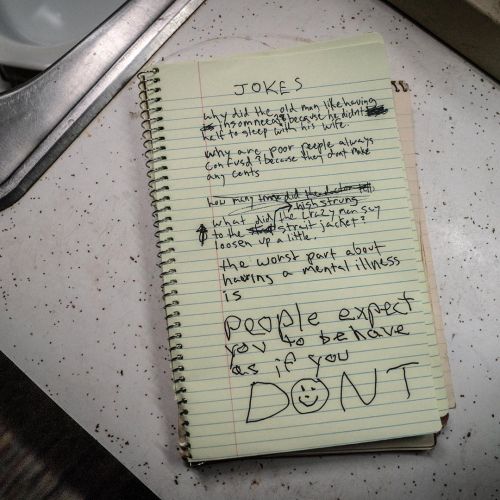 JOKES
why did the old man like having
insomneea? because he didnt
haft to sleep with his wife.
why are poor people always
confusd? because they dont make
any cents
how many time did the doctor tell
high strung
what did the crazy man say
to the strait jacket?
loosen up a little.
the worst part about
having a mental illness
is
people expect
you to behave
as if you
DONT